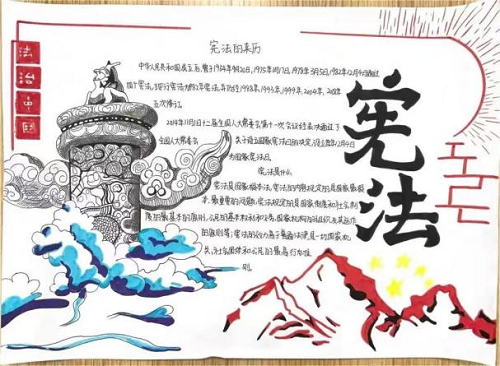 法治中国
宪法的来历
中华人民共和国成立后,曾于1954年9月20日,1975年1月17日,1978年3月5日,1982年12月4日通过
四个宪法,现行宪法为82年宪法,并历经1988年,1993年,1999年,2004年,2018年
五次修订。
2014年11月1日十二届全国人大常委会第十一次会议经表决通过了
全国人大常委会
关于设立国家宪法日的决定,设立每年12月4日
为国家宪法日。
宪法是什么
宪法是国家根本法。宪法的内容规定的是国家最根
本、最重要的问题。宪法规定的是国家制度和社会制
度的最基本的原则,公民的基本权利和义务,国家机构的组织及其运作
的原则等;宪法的效力高于普通法律,是一切国家机
关、社会团体和公民的最高行为准
则。
宪法